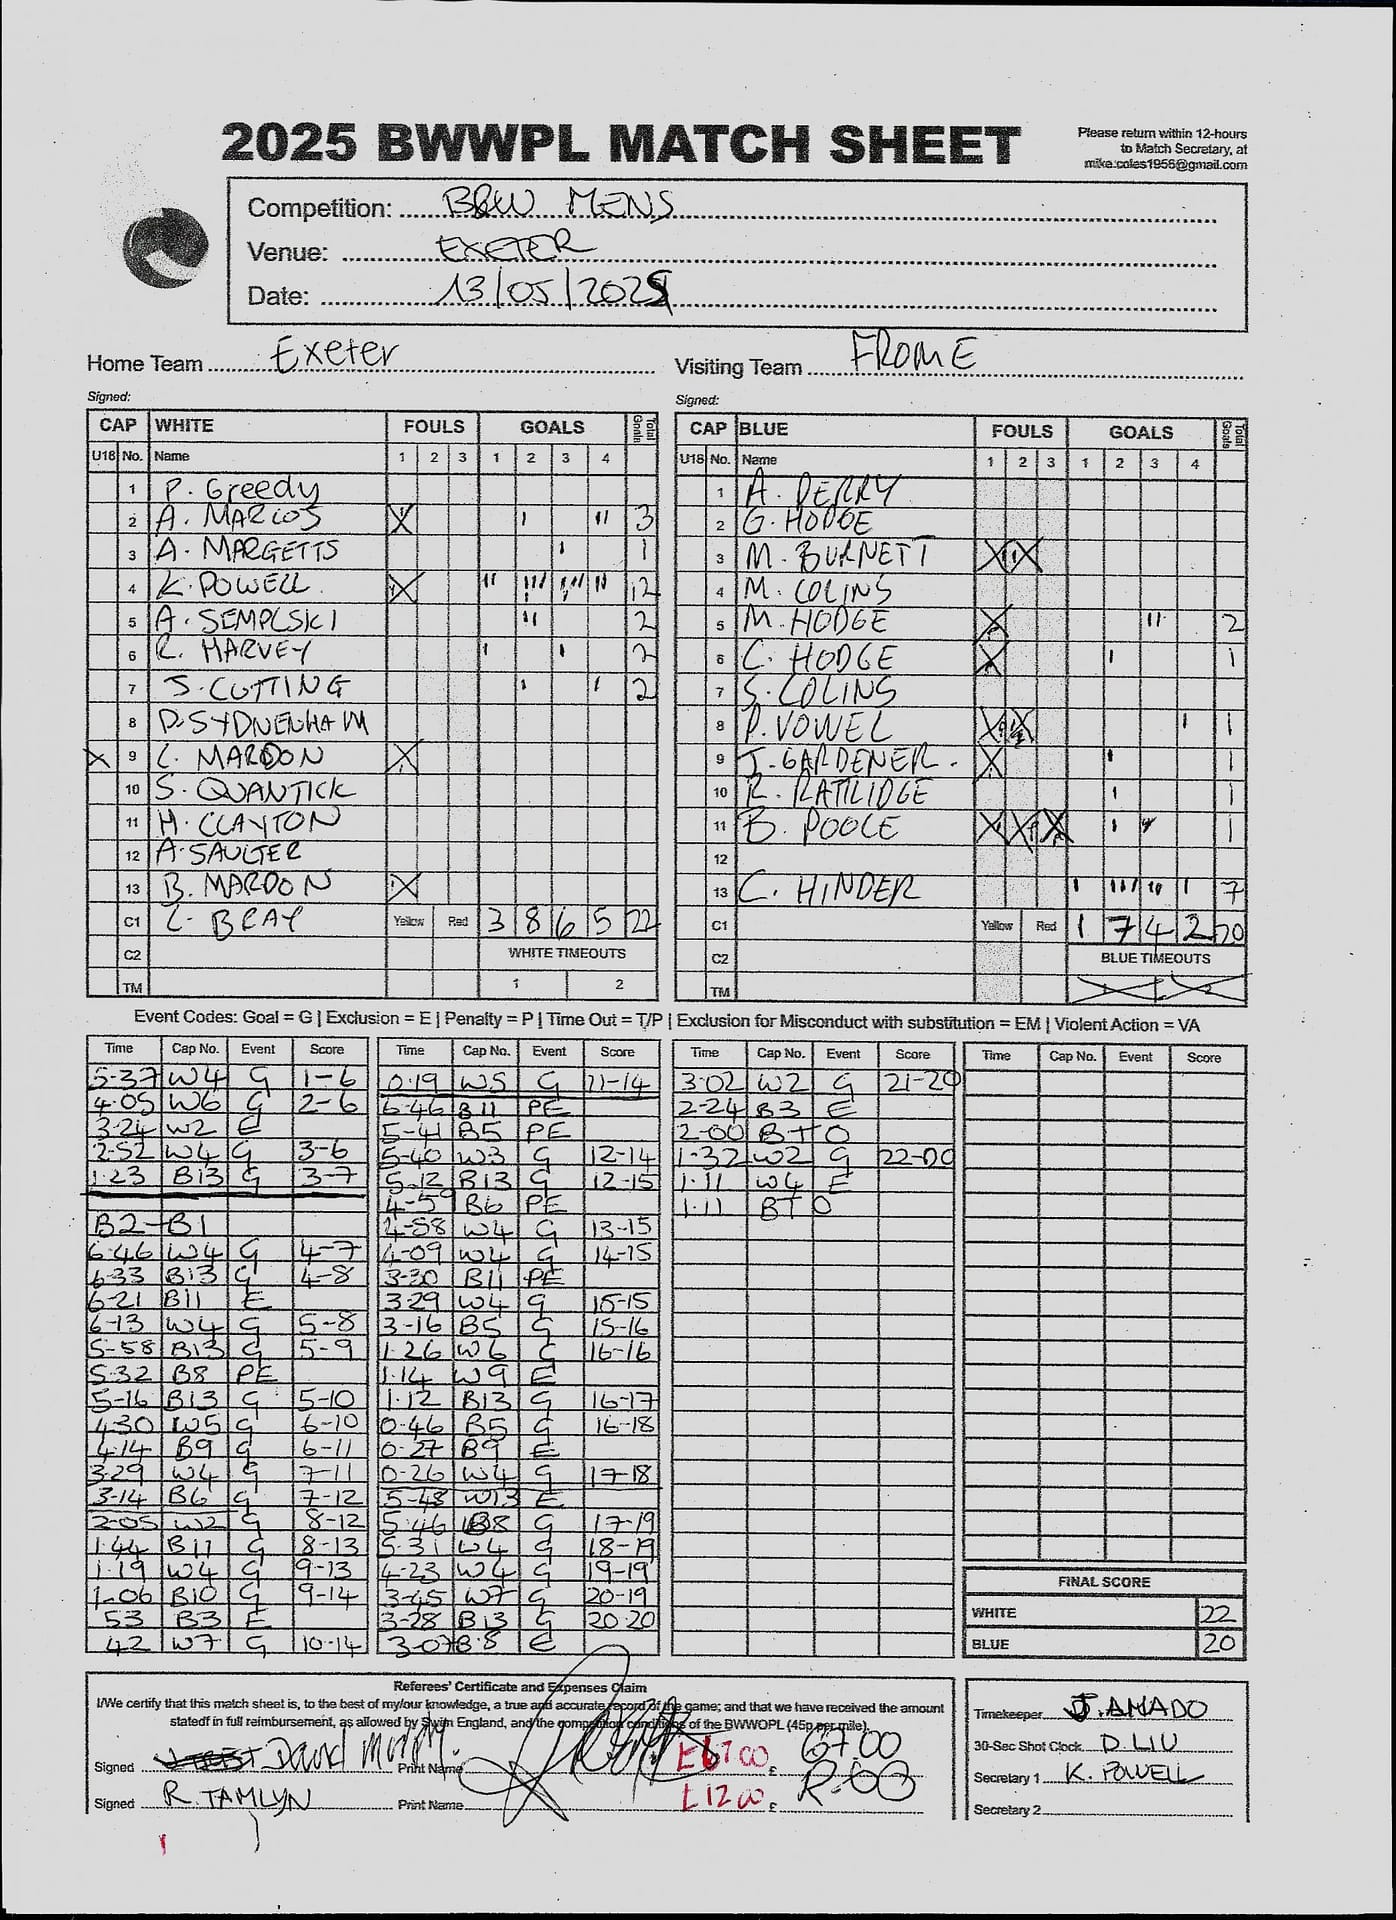 2025 BWWPL MATCH SHEET
Please return within 12-hours
to Match Secretary, at
mike.coles1956@gmail.com
Competition: B&W MENS
Venue: EXETER
Date: 13/05/2025
Home Team Exeter
Visiting Team FROME
Signed:
Signed:
CAP WHITE FOULS GOALS Total Goals
U18 No. Name 1 2 3 1 2 3 4
1 P. Greedy
2 A. MARCOS X ı ıı 3
3 A. MARGETTS ı 1
4 K. POWELL X 12
5 A. SEMPLSKI ıı 2
6 R. HARVEY ı ı 2
7 J. CUTTING ı ı 2
8 D. SYDNENHAM
X 9 L. MARDON X
10 S. QUANTICK
11 H. CLAYTON
12 A. SAULTER
13 B. MARDON X
C1 L. BRAY Yellow Red 3 8 6 5 22
C2 WHITE TIMEOUTS
TM 1 2
CAP BLUE FOULS GOALS Total Goals
U18 No. Name 1 2 3 1 2 3 4
1 A. DERRY
2 G. HODGE
3 M. BURNETT X X
4 M. COLINS
5 M. HODGE X ıı 2
6 C. HODGE X ı 1
7 S. COLINS
8 P. VOWEL X X ı 1
9 J. GARDENER. X ı 1
10 R. RATRIDGE ı 1
11 B. POOLE X X X ı 1
12
13 C. HINDER ı ıııı ıı ı 7
C1 Yellow Red 1 7 4 2 20
C2 BLUE TIMEOUTS
TM
Event Codes: Goal = G | Exclusion = E | Penalty = P | Time Out = T/P | Exclusion for Misconduct with substitution = EM | Violent Action = VA
Time Cap No. Event Score
5-37 W4 G 1-6
4-05 W6 G 2-6
3-24 W2 E
2-52 W4 G 3-6
1.23 B13 G 3-7
B2-B1
6-46 W4 G 4-7
6-33 B13 G 4-8
6-21 B11 E
6-13 W4 G 5-8
5-58 B13 G 5-9
5.32 B8 PE
5-16 B13 G 5-10
4.30 W5 G 6-10
4.14 B9 G 6-11
3.29 W4 G 7-11
3-14 B6 G 7-12
2-05 W2 G 8-12
1.44 B11 G 8-13
1.19 W4 G 9-13
1-06 B10 G 9-14
53 B3 E
42 W7 G 10-14
Time Cap No. Event Score
0.19 W5 G 11-14
6-46 B11 PE
5-41 B5 PE
5-40 W3 G 12-14
5-12 B13 G 12-15
4-59 B6 PE
4-58 W4 G 13-15
4-09 W4 G 14-15
3-30 B11 PE
3.29 W4 G 15-15
3-16 B5 G 15-16
1.26 W6 G 16-16
1.14 W9 E
1.12 B13 G 16-17
0-46 B5 G 16-18
0-27 B9 E
0-26 W4 G 17-18
5-48 W13 E
5.46 B8 G 17-19
5-31 W4 G 18-19
4-23 W4 G 19-19
3-45 W7 G 20-19
3-28 B13 G 20.20
3-07 B8 E
Time Cap No. Event Score
3-02 W2 G 21-20
2-24 B3 E
2-00 BTO
1-32 W2 G 22-20
1.11 W4 E
1.11 BTO
Time Cap No. Event Score
FINAL SCORE
WHITE 22
BLUE 20
Referees' Certificate and Expenses Claim
I/We certify that this match sheet is, to the best of my/our knowledge, a true and accurate record of the game; and that we have received the amount
statedf in full reimbursement, as allowed by Swim England, and the competition conditions of the BWWOPL (45p per mile).
Signed David Print Name £67.00 £ 67.00
Signed R. TAMLYN Print Name £12.00 £
Timekeeper J. AMADO
30-Sec Shot Clock D. LIU
Secretary 1 K. POWELL
Secretary 2